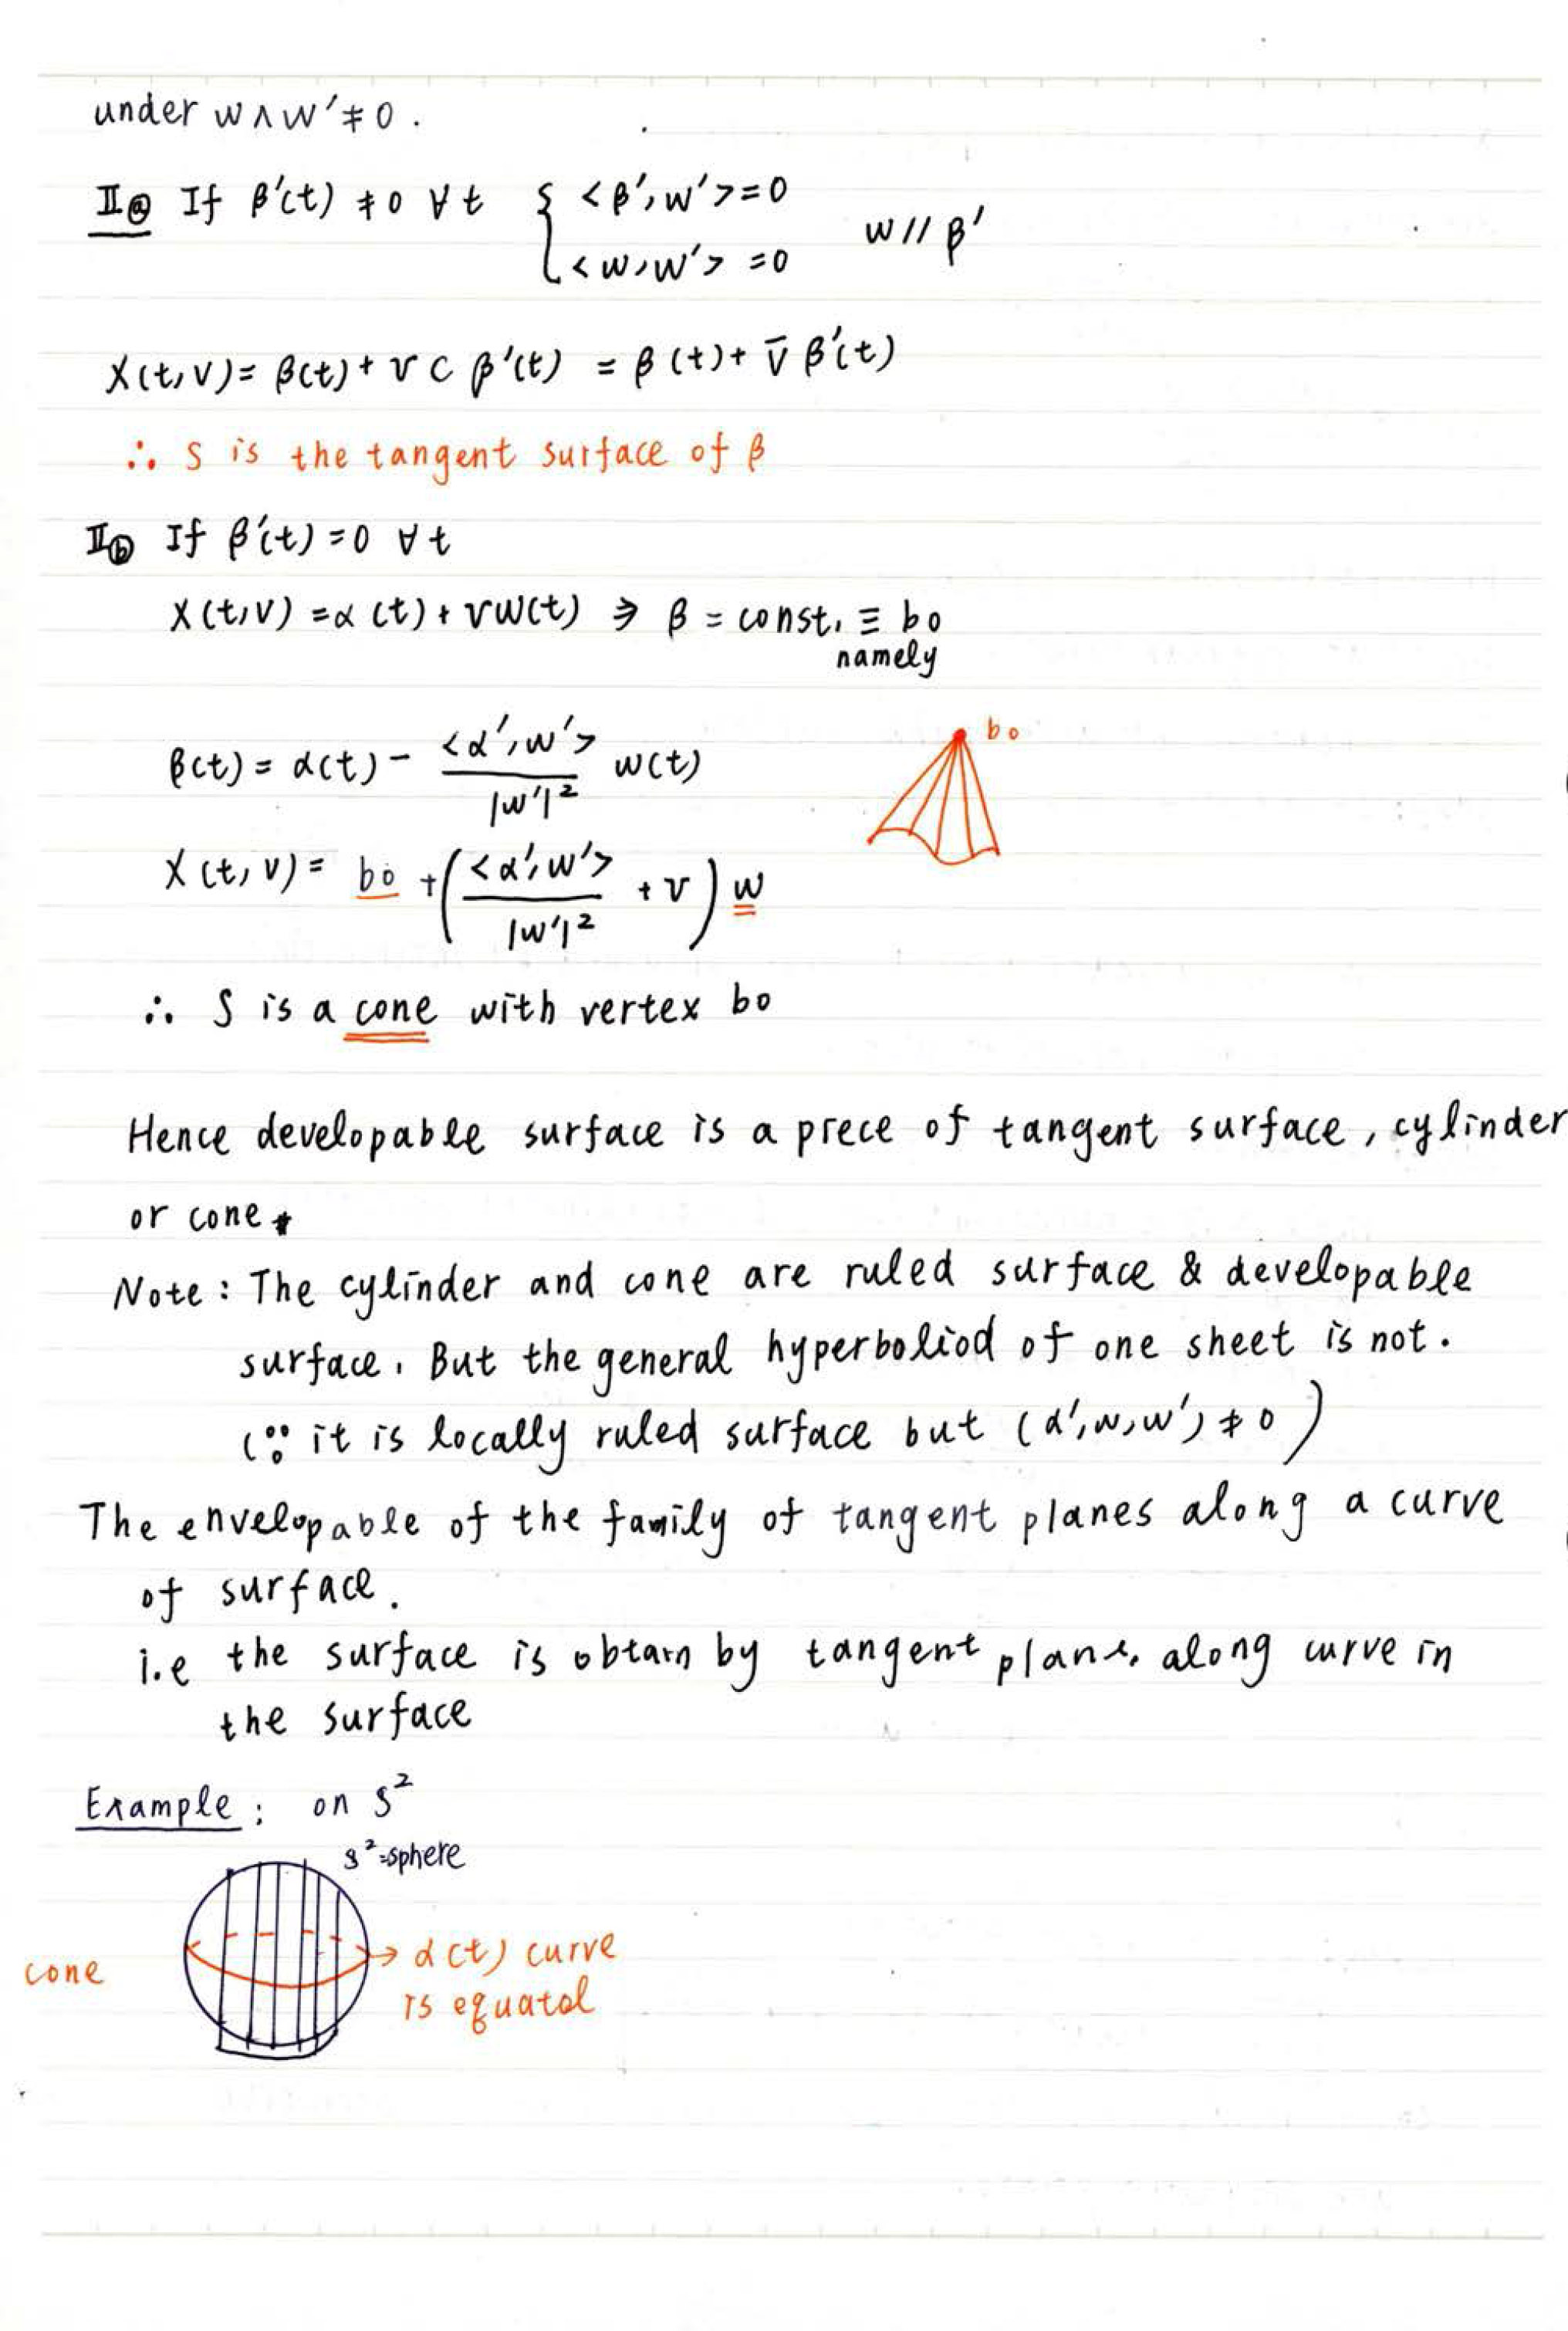 under w∧w′≠0.
Ⅱⓐ If β′(t) ≠0 ∀t { <β′,w′>=0
<w,w′>=0 w//β′
X(t,v)= β(t)+ v c β′(t) = β(t)+ v̄ β′(t)
∴ S is the tangent surface of β
Ⅱⓑ If β′(t)=0 ∀t
X(t,v)=α(t)+vw(t) ⇒ β = const, ≡ b0
namely
β(t)= α(t)- <α′,w′>/|w′|² w(t)
b0
X(t,v)= b0 +(<α′,w′>/|w′|² +v) w
∴ S is a cone with vertex b0
Hence developable surface is a piece of tangent surface, cylinder
or cone
Note: The cylinder and cone are ruled surface & developable
surface. But the general hyperboliod of one sheet is not.
(∵ it is locally ruled surface but (α′,w,w′)≠0)
The envelopable of the family of tangent planes along a curve
of surface.
i.e the surface is obtain by tangent plane, along curve in
the surface
Example: on S²
S²=sphere
cone
→ α(t) curve
is equatol